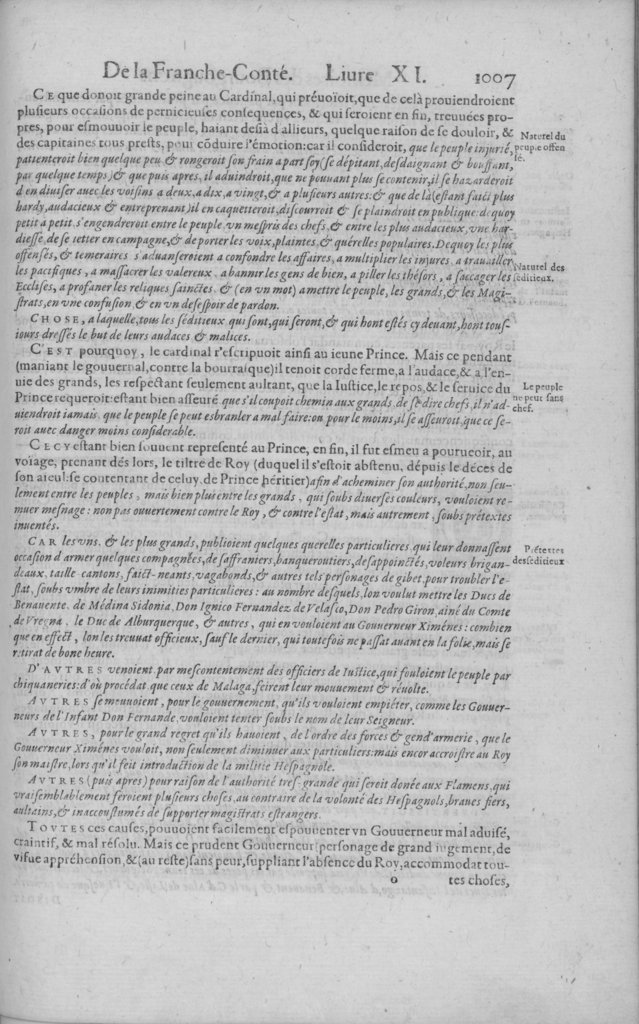 De la Franche-Conté. Liure XI. 1007
CE que donoit grande peine au Cardinal, qui prévoïoit, que de celà prouiendroient
plusieurs occasions de pernicieuses consequences, & qui seroient en fin, treuuées pro-
pres, pour esmouuoir le peuple, haiant desià d'allieurs, quelque raison de se douloir, &
des capitaines tous prests, pour cõduire l'émotion: car il consideroit, que le peuple injurié,
Naturel du
peuple offen
sé.
patienteroit bien quelque peu & rongeroit son frain apart soy (se dépitant, desdaignant & bouffant,
par quelque temps) & que puis apres, il aduindroit, que ne pouuant plus se contenir, il se hazarderoit
d'en diuiser auec les voisins a deux, a dix, a vingt, & a plusieurs autres: & que de là (estant faict plus
hardy, audacieux & entreprenant) il en caquetteroit, discourroit & se plaindroit en publique: dequoy
petit a petit s'engendreroit entre le peuple vn mespris des chefs, & entre les plus audacieux, vne har-
diesse, de se ietter en campagne, & de porter les voix, plaintes, & quérelles populaires. Dequoy les plus
offensés, & temeraires s'aduanseroient a confondre les affaires, a multiplier les injures, a trauailler
les pacifiques, a massacrer les valereux, a bannir les gens de bien, a piller les thésors, a saccager les
Naturel des
séditieux.
Ecclises, a profaner les reliques sainctes, & (en vn mot) a mettre le peuple, les grands, & les Magi-
strats, en vne confusion & en vn desespoir de pardon.
CHOSE, a laquelle, tous les séditieux qui sont, qui seront, & qui hont estés cy deuant, hont tous-
iours dressés le but de leurs audaces & malices.
C'EST pourquoy, le cardinal r'escripuoit ainsi au ieune Prince. Mais ce pendant
(maniant le gouuernal, contre la bourraſque) il tenoit corde ferme, a l'audace, & a l'en-
uie des grands, les respectant seulement aultant, que la Iustice, le repos, & le seruice du
Prince requeroit: estant bien asseuré que s'il coupoit chemin aux grands, de se dire chefs, il n'ad-
Le peuple
ne peut sans
chef.
uiendroit iamais, que le peuple se peut esbranler a mal faire: ou pour le moins, il se asseuroit, que ce se-
roit auec danger moins considerable.
CECY estant bien souuent representé au Prince, en fin, il fut esmeu a pourueoir, au
voiage, prenant dés lors, le tiltre de Roy (duquel il s'estoit abstenu, dépuis le déces de
son aïeul: se contentant de celuy, de Prince héritier) afin d'acheminer son authorité, non seu-
lement entre les peuples, mais bien plus entre les grands, qui soubs diuerses couleurs, vouloient re-
muer mesnage: non pas ouuertement contre le Roy, & contre l'estat, mais autrement, soubs prétextes
inuentés.
CAR les vns, & les plus grands, publioient quelques querelles particulieres qui leur donnassent
Prétextes
des séditieux
occasion d'armer quelques compagnées, de saffraniers, banqueroutiers, desappoinctés, voleurs brigan-
deaux, taille-cantons, faict-neants, vagabonds, & autres tels personages de gibet, pour troubler l'e-
stat, soubs vmbre de leurs inimities particulieres: au nombre desquels, lon voulut mettre les Ducs de
Benauente, de Médina Sidonia, Don Ignico Fernandez de Velasco, Don Pedro Giron, ainé du Comte
de Vregna, le Duc de Alburquerque, & autres, qui en vouloient au Gouuerneur Ximénes: combien
que en effect, lon les treuuat officieux, sauf le dernier, qui toutefois ne passat auant en la folie, mais se
retirat de bone heure.
D'AVTRES venoient par mescontentement des officiers de Iustice, qui fouloient le peuple par
chiquaneries: d'où procédat que ceux de Malaga, feirent leur mouuement & révolte.
AVTRES se meuuoient, pour le gouuernement, qu'ils vouloient empiéter, comme les Gouuer-
neurs de l'Infant Don Fernande, vouloient tenter soubs le nom de leur Seigneur.
AVTRES, pour le grand regret qu'ils hauoient, de l'ordre des forces & gend'armerie, que le
Gouuerneur Ximénes vouloit, non seulement diminuer aux particuliers: mais encor accroistre au Roy
son maistre, lors qu'il feit introduction de la militie Hespagnole.
AVTRES (puis apres) pour raison de l'authorité tres-grande qui seroit donée aux Flamens, qui
vraisemblablement feroient plusieurs choses, au contraire de la volonté des Hespagnols, braues fiers,
aultains, & inaccoustumés de supporter magistrats estrangers.
TOVTES ces causes, pouuoient facilement espouuenter vn Gouuerneur mal aduisé,
craintif, & mal résolu. Mais ce prudent Gouuerneur (personage de grand iugement, de
visue appréhension, & (au reste) sans peur, suppliant l'absence du Roy, accommodat tou-
o tes choses,